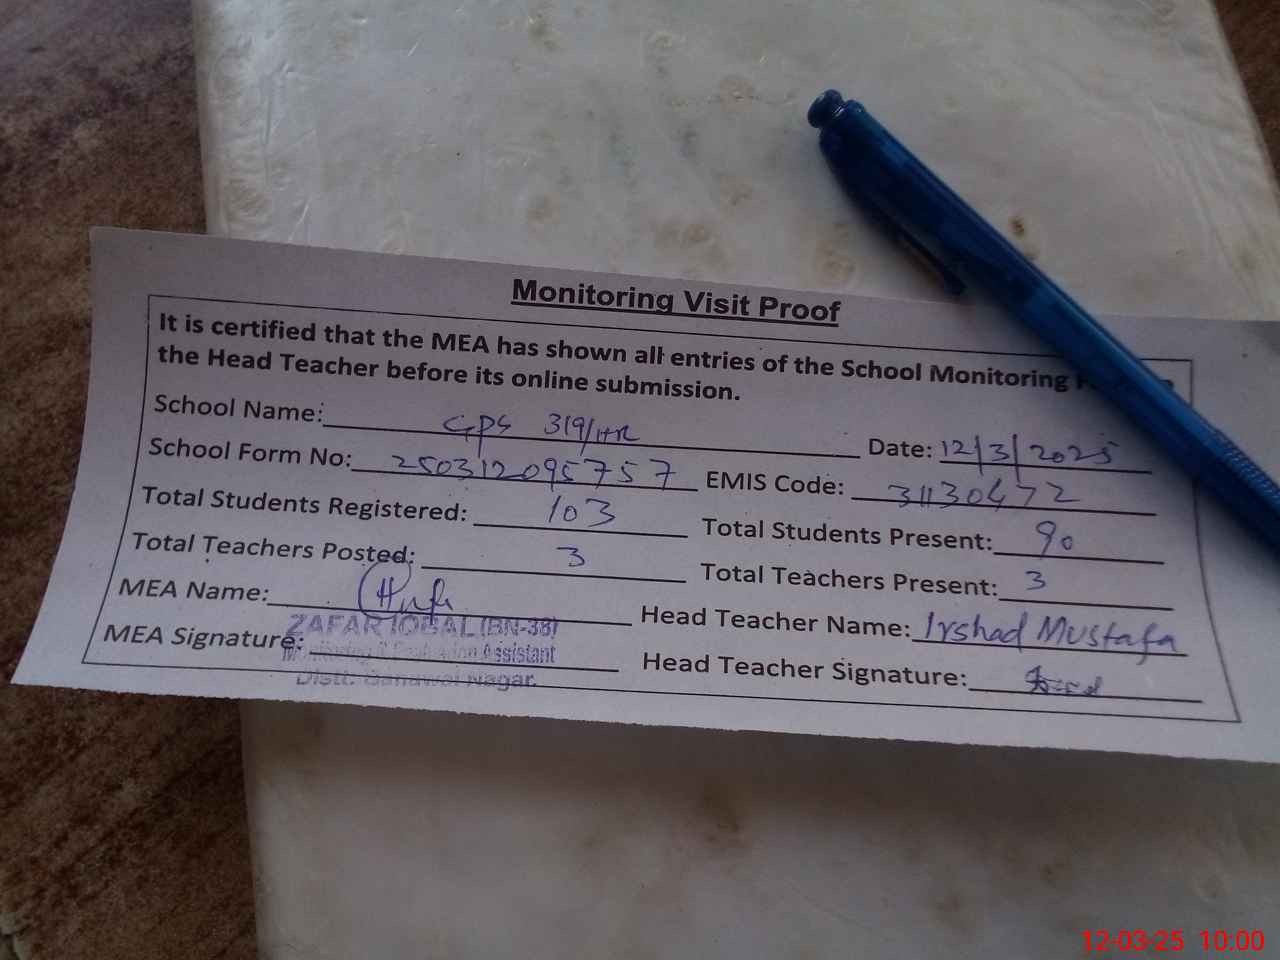 Monitoring Visit Proof
It is certified that the MEA has shown all entries of the School Monitoring
the Head Teacher before its online submission.
School Name: GPS 319/HR Date: 12/3/2025
School Form No: 250312095757 EMIS Code: 31130472
Total Students Registered: 103 Total Students Present: 90
Total Teachers Posted: 3 Total Teachers Present: 3
MEA Name: Head Teacher Name: Irshad Mustafa
MEA Signature: Head Teacher Signature:
ZAFAR IQBAL (BN-38)
Monitoring & Evaluation Assistant
Distt: Bahawal Nagar.
12-03-25 10:00